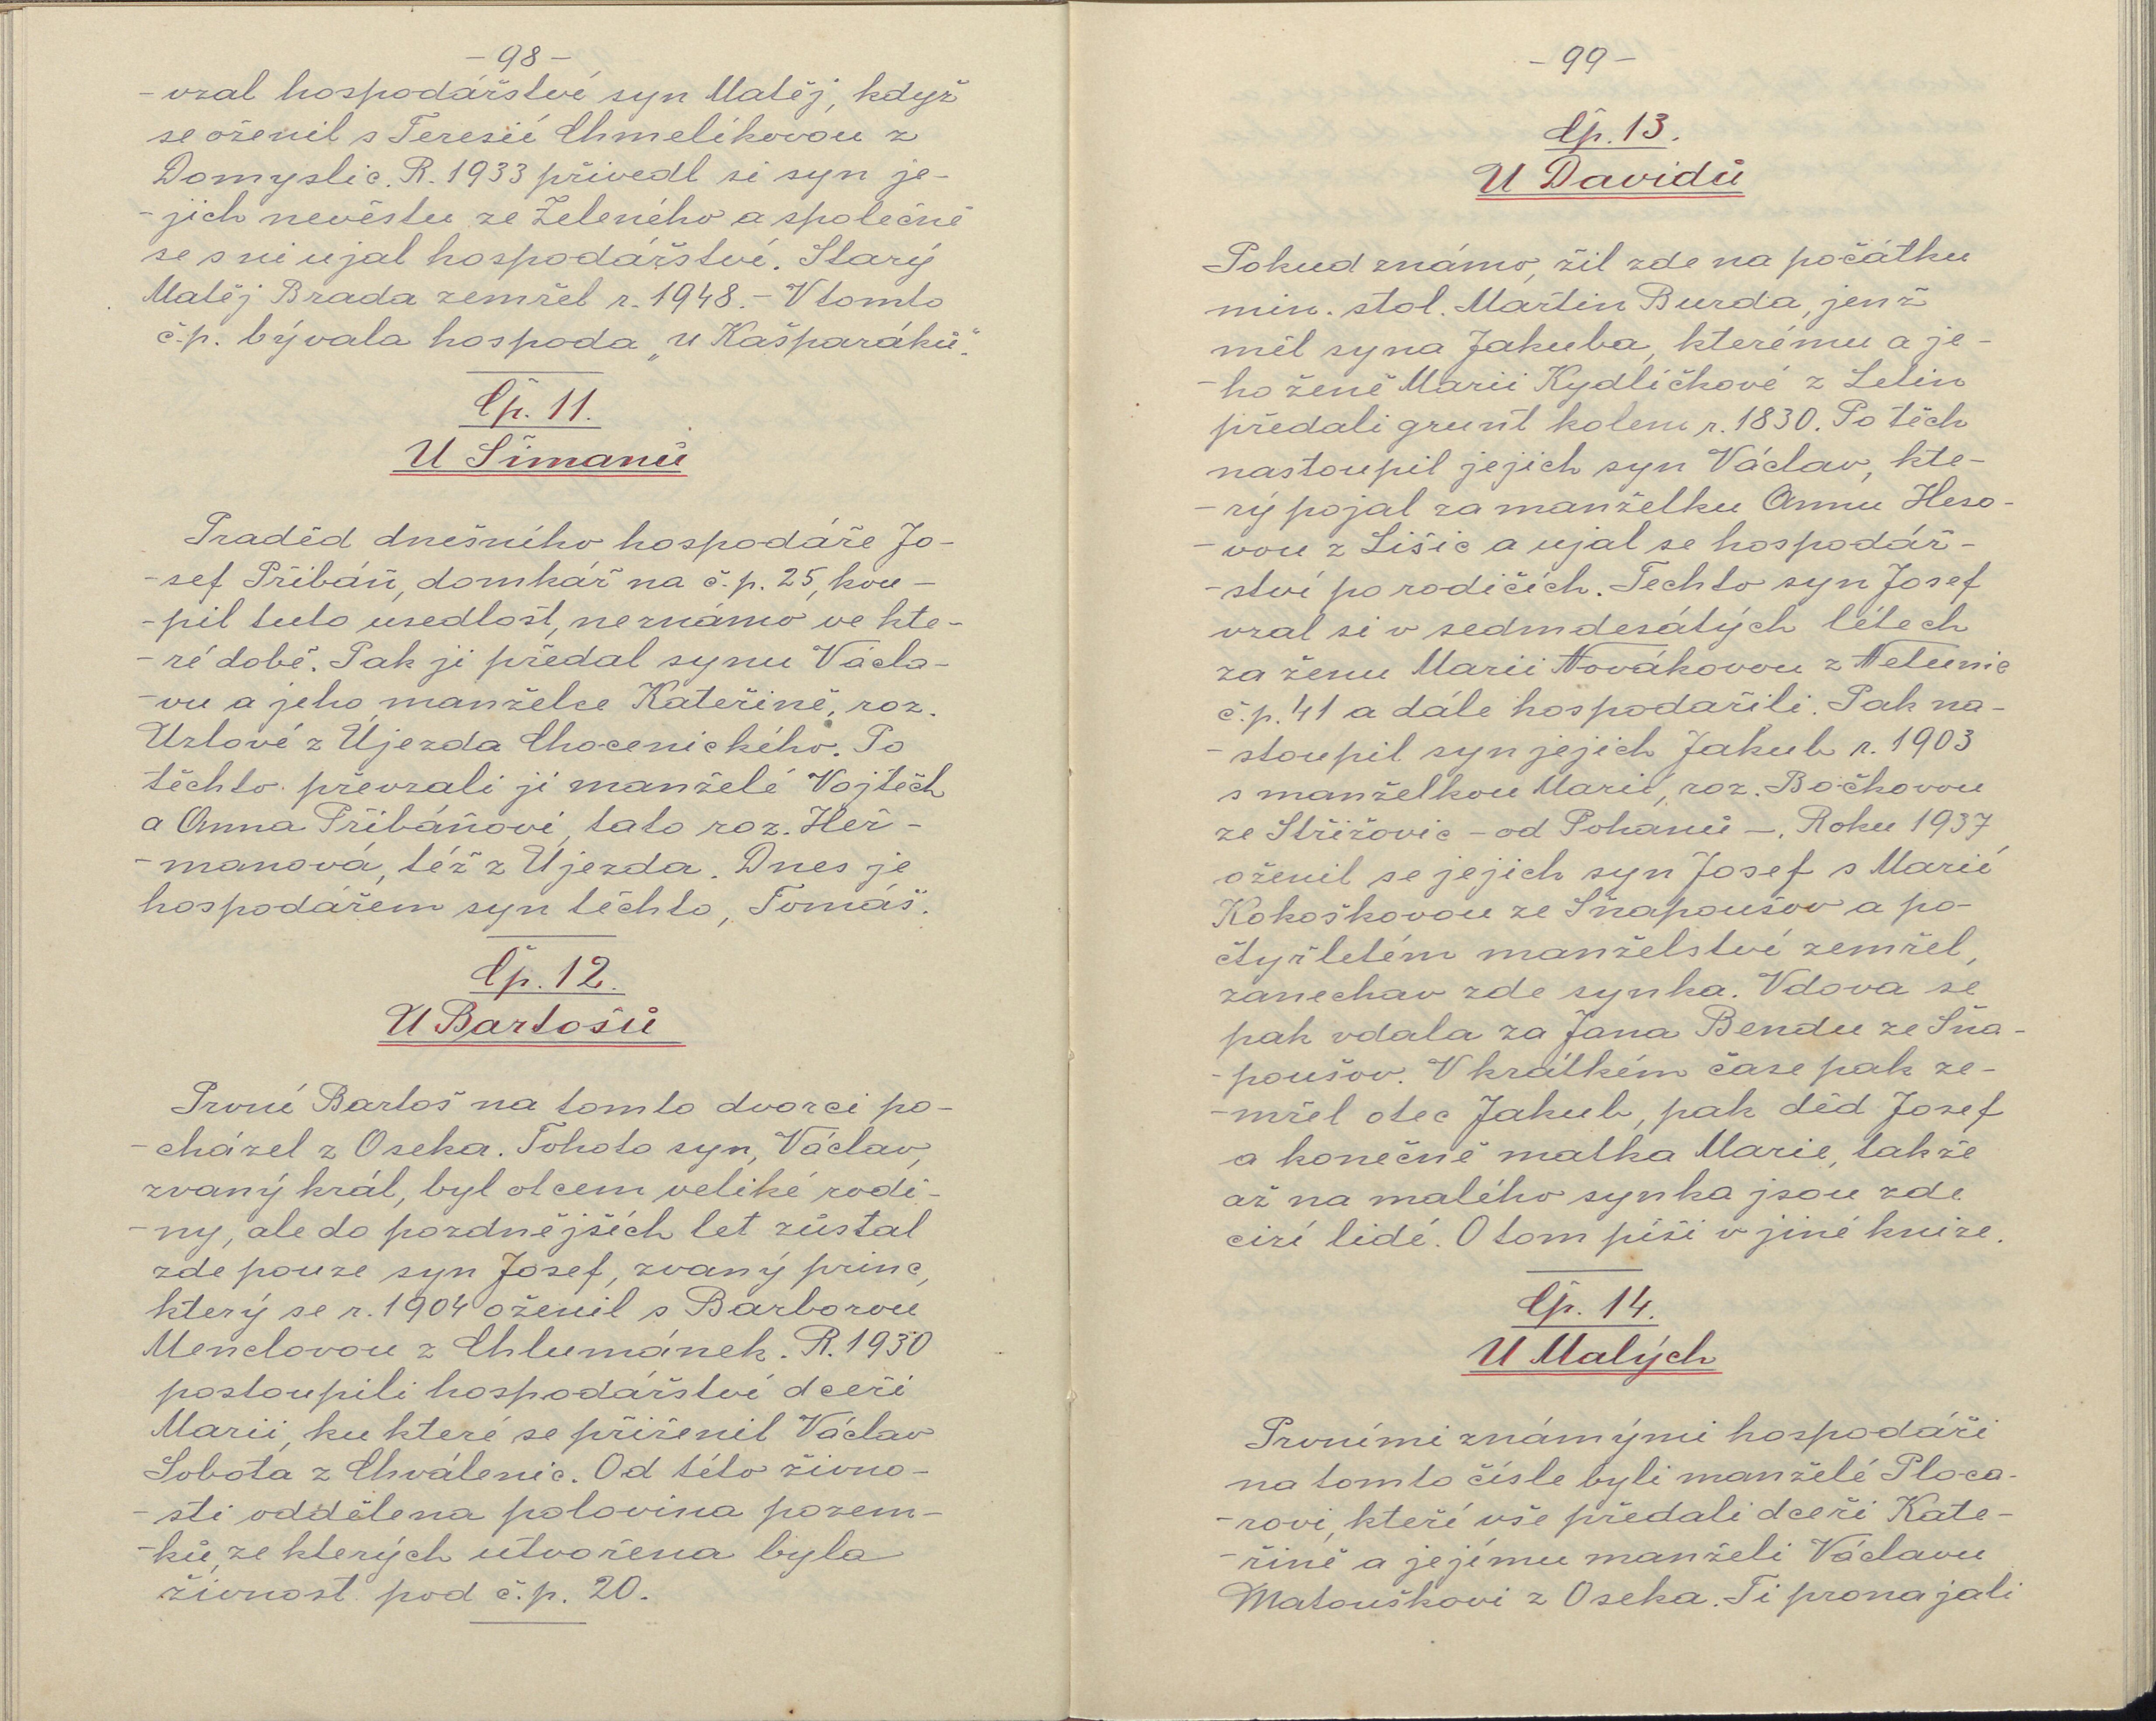 -98-
-vzal hospodářství syn Matěj, když
se oženil s Teresií Chmelíkovou z
Domyslic. R. 1933 přivedl si syn je-
-jich nevěstu ze Želeného a společně
se s ni ujal hospodářství. Starý
Matěj Brada zemřel r. 1948. - V tomto
č.p. bývala hospoda „u Kašparáků".
Čp. 11.
U Šimanů
Praděd dnešního hospodáře Jo-
-sef Přibáň, domkář na č.p. 25, kou-
-pil tuto usedlost, neznámo ve kte-
-ré době. Pak ji předal synu Václa-
-vu a jeho manželce Kateřině, roz.
Uzlové z Újezda Chocenického. Po
těchto převzali ji manželé Vojtěch
a Anna Přibáňovi, tato roz. Heř-
-manová, též z Újezda. Dnes je
hospodářem syn těchto, Tomáš.
Čp. 12.
U Bartošů
První Bartoš na tomto dvorci po-
-cházel z Oseka. Tohoto syn, Václav,
zvaný král, byl otcem veliké rodi-
-ny, ale do pozdnějších let zůstal
zde pouze syn Josef, zvaný princ,
který se r. 1904 oženil s Barborou
Menclovou z Chlumánek. R. 1930
postoupili hospodářství dceři
Marii, ku které se přiženil Václav
Sobota z Chválenic. Od této živno-
-sti oddělena polovina pozem-
-ků, ze kterých utvořena byla
živnost pod č.p. 20.
-99-
Čp. 13.
U Davidů
Pokud známo, žil zde na počátku
min. stol. Martin Burda, jenž
měl syna Jakuba, kterému a je-
-ho ženě Marii Kydlíčkové z Letin
předali grunt kolem r. 1830. Po těch
nastoupil jejich syn Václav, kte-
-rý pojal za manželku Annu Heso-
-vou z Lišic a ujal se hospodář-
-ství po rodičích. Techto syn Josef
vzal si v sedmdesátých létech
za ženu Marii Novákovou z Netunic
č.p. 41 a dále hospodařili. Pak na-
-stoupil syn jejich Jakub r. 1903
s manželkou Marií, roz. Bočkovou
ze Střížovic - od Pohanů -. Roku 1937
oženil se jejich syn Josef s Marií
Kokoškovou ze Šňapoušov a po-
čtyřletém manželství zemřel,
zanechav zde synka. Vdova se
pak vdala za Jana Bendu ze Šňa-
-poušov. V krátkém čase pak ze-
-mřel otec Jakub, pak děd Josef
a konečně matka Marie, takže
až na malého synka jsou zde
cizí lidé. O tom píši v jiné knize.
Čp. 14.
U Malých
Prvními známými hospodáři
na tomto čísle byli manželé Ploca-
-rovi, kteří vše předali dceři Kate-
-řině a jejímu manželi Václavu
Matouškovi z Oseka. Ti pronajali